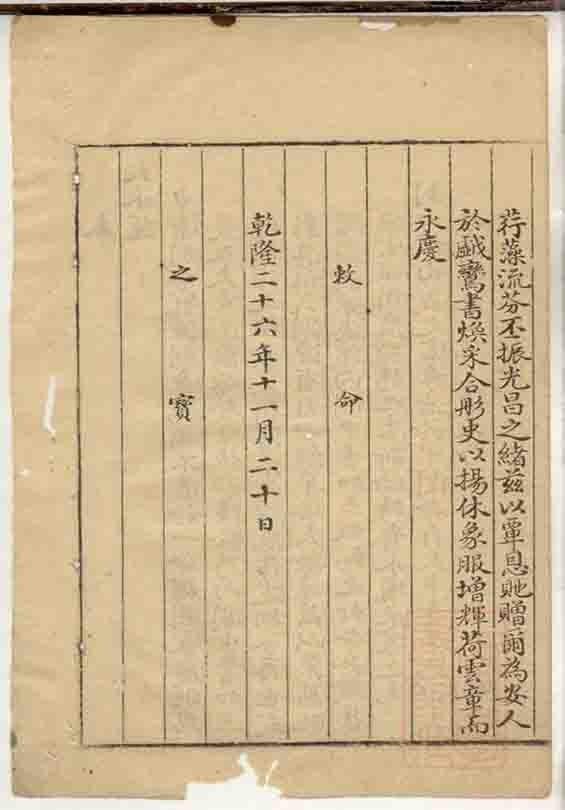 荇藻流芬丕振光昌之緒茲以覃恩貤贈爾為安人
於戲鸞書煥采合彤史以揚休象服增輝荷雲章而
永慶
敕命
乾隆二十六年十一月二十日
之寶